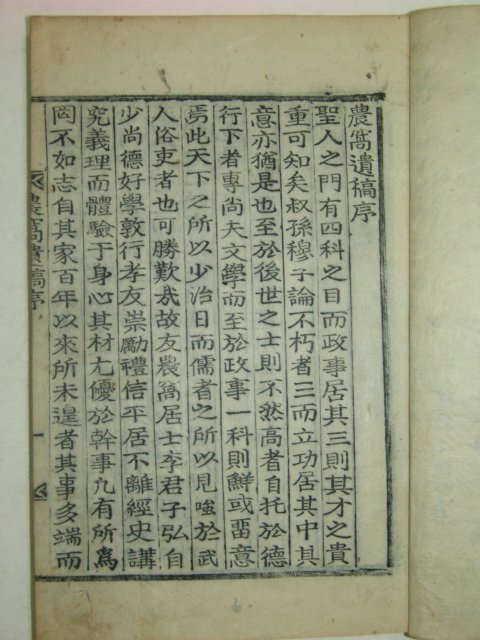 農窩遺稿序
聖人之門有四科之目而政事居其三則其才之貴
重可知矣叔孫穆子論不朽者三而立功居其中其
意亦猶是也至於後世之士則不然高者自托於德
行下者專尚夫文學而至於政事一科則鮮或畱意
焉此天下之所以少治日而儒者之所以見嗤於武
人俗吏者也可勝歎哉故友農窩居士李君子弘自
少尚德好學敦行孝友崇勵禮
平居不離經史講
究義理而體驗于身心其材尤優於幹事凢有所爲
罔不如志自其家百年以來所未遑者其事多端而
農窩遺稿序
一